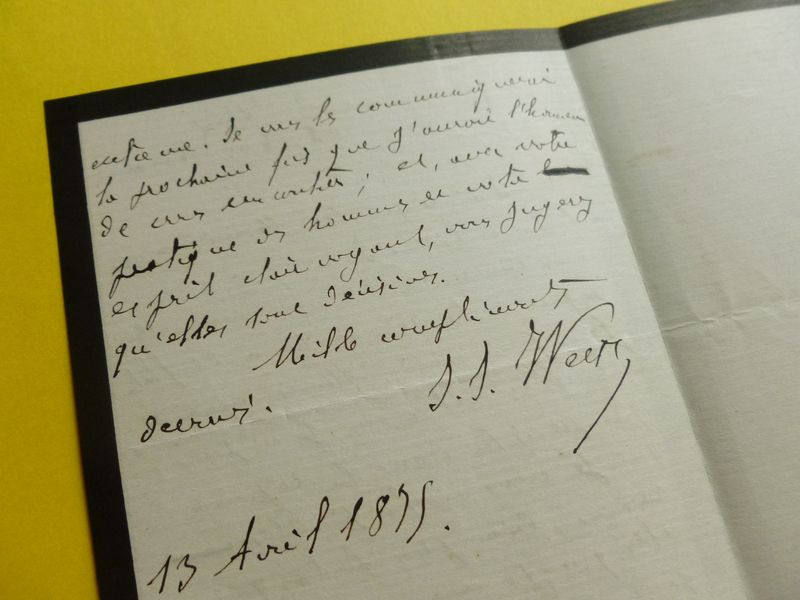 extrême. Je vous les communiquerai
la prochaine fois que j'aurai l'honneur
de vous rencontrer; et, avec votre
pratique des hommes et votre
esprit clairvoyant, vous jugerez
qu'elles sont décisives.
Mille compliments
dévoués.
J. J. Weiss
13 Avril 1875.